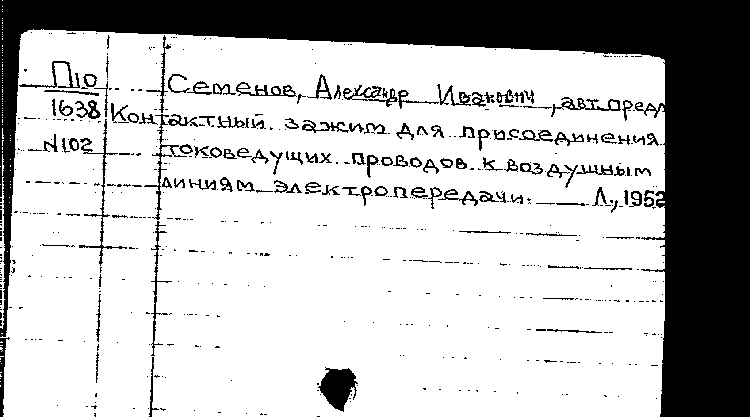 П10 Семенов, Александр Иванович, авт. предл
1638 Контактный зажим для присоединения
N102 токоведущих проводов к воздушным
линиям электропередачи. — Л., 1952